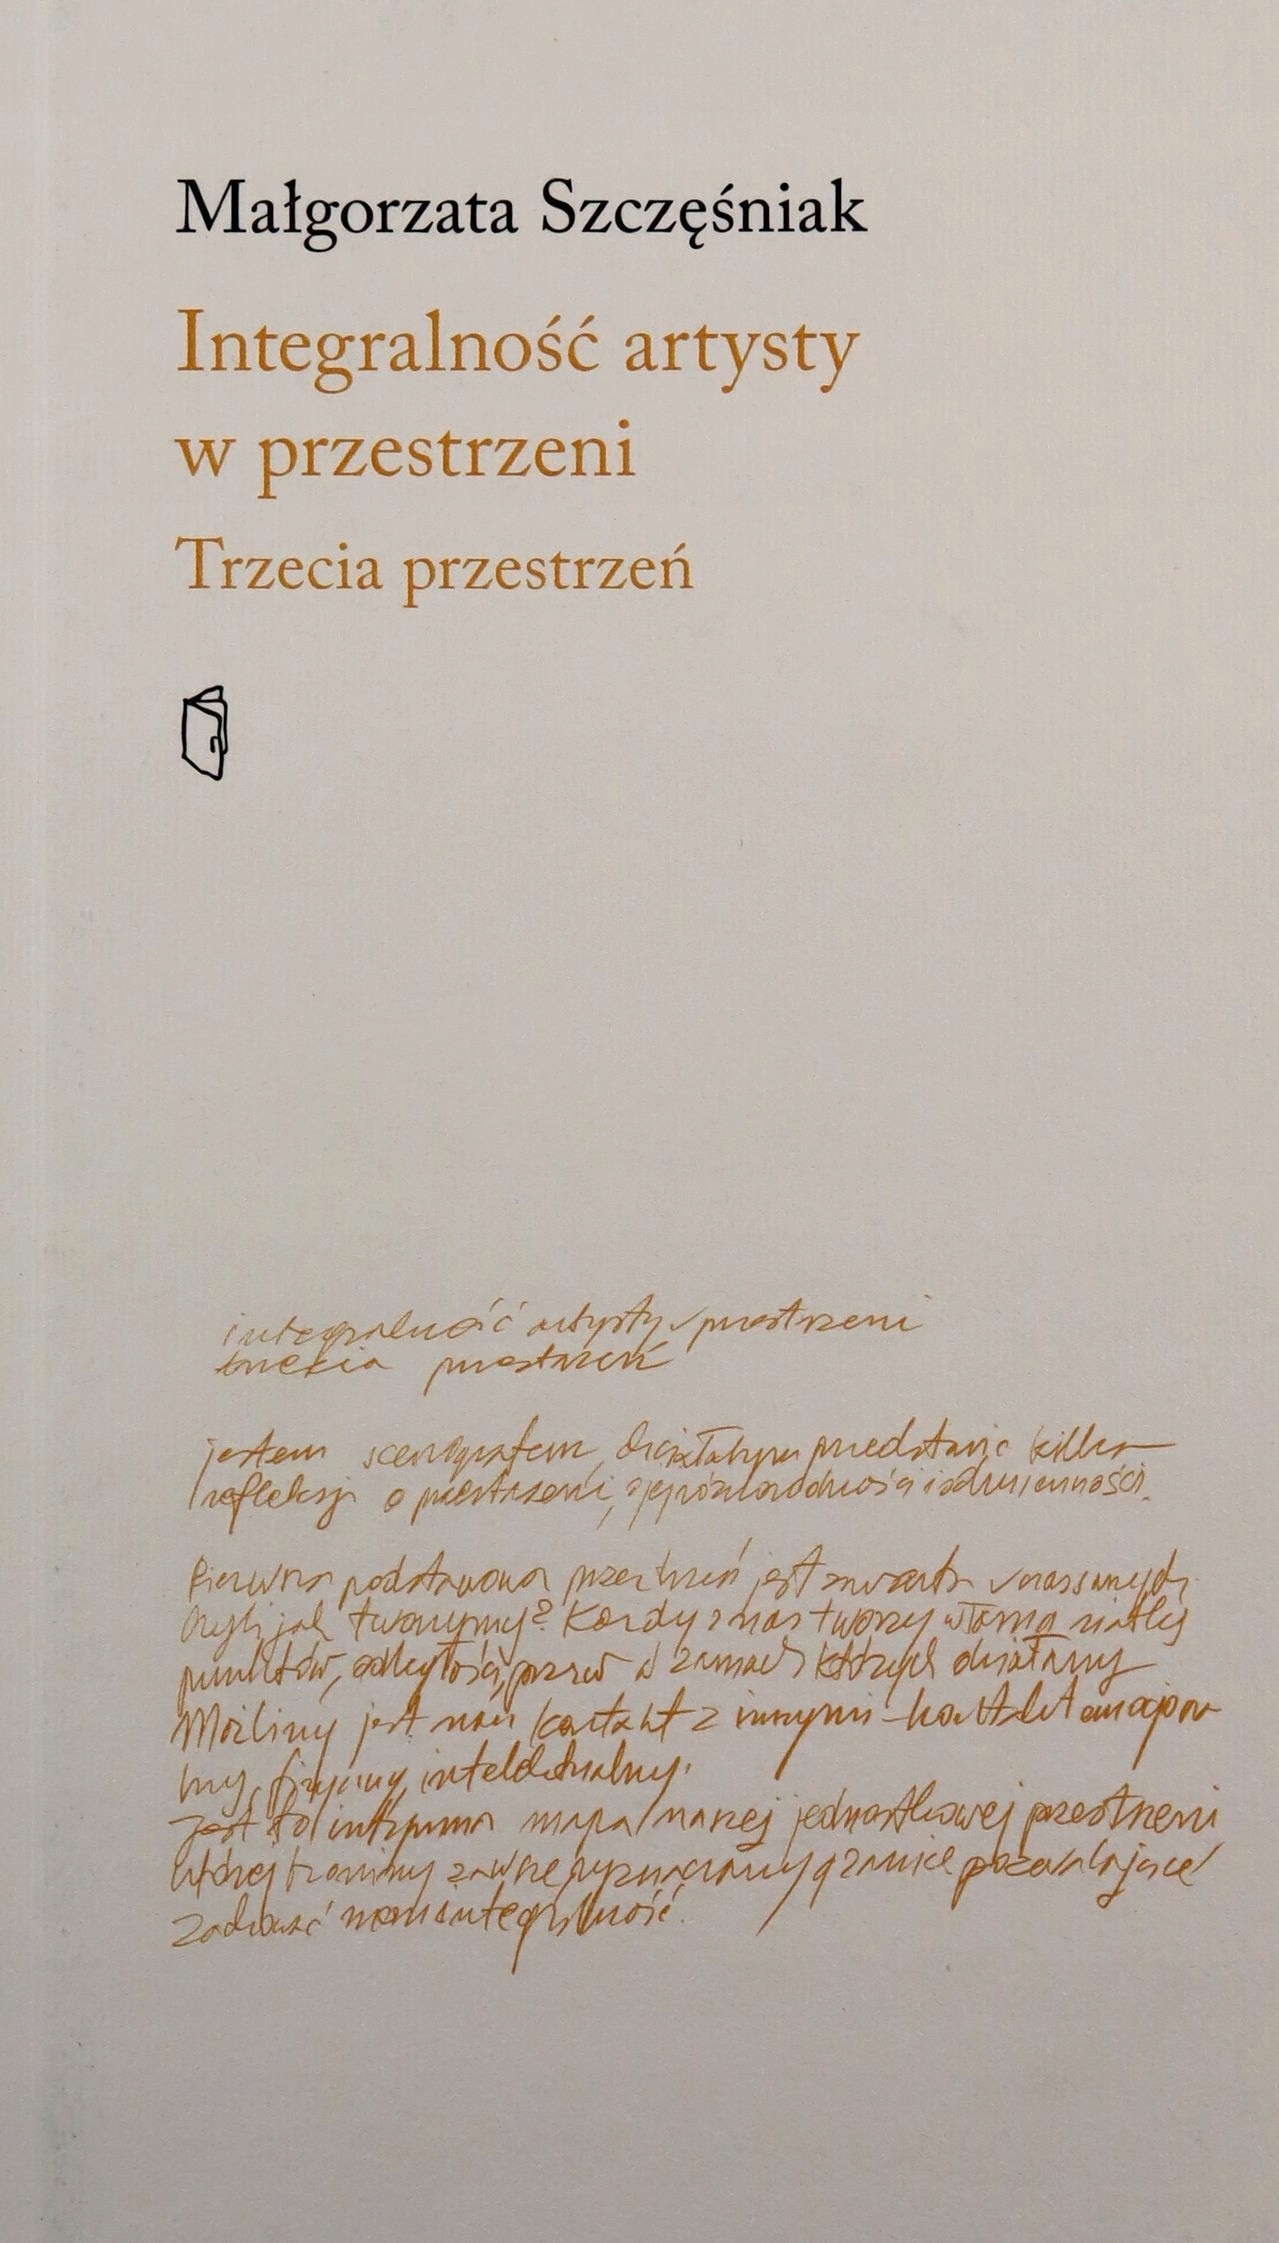 Małgorzata Szczęśniak
Integralność artysty
w przestrzeni
Trzecia przestrzeń
integralność artysty w przestrzeni
trzecia przestrzeń
jestem scenografem, chciałabym przedstawić kilka
refleksji o przestrzeni, jej różnorodności i odmienności.
Pierwsza podstawowa przestrzeń jest zawarta w nas samych
czyli jak tworzymy? Każdy z nas tworzy własną siatkę
punktów, odległości, w ramach których działamy
Możliwy jest nasz kontakt z innymi – kontakt emocjonal
ny, fizyczny, intelektualny.
Jest to intymna mapa naszej jednostkowej przestrzeni
której bronimy zawsze wyznaczamy granice pozwalające
zachować nam integralność.